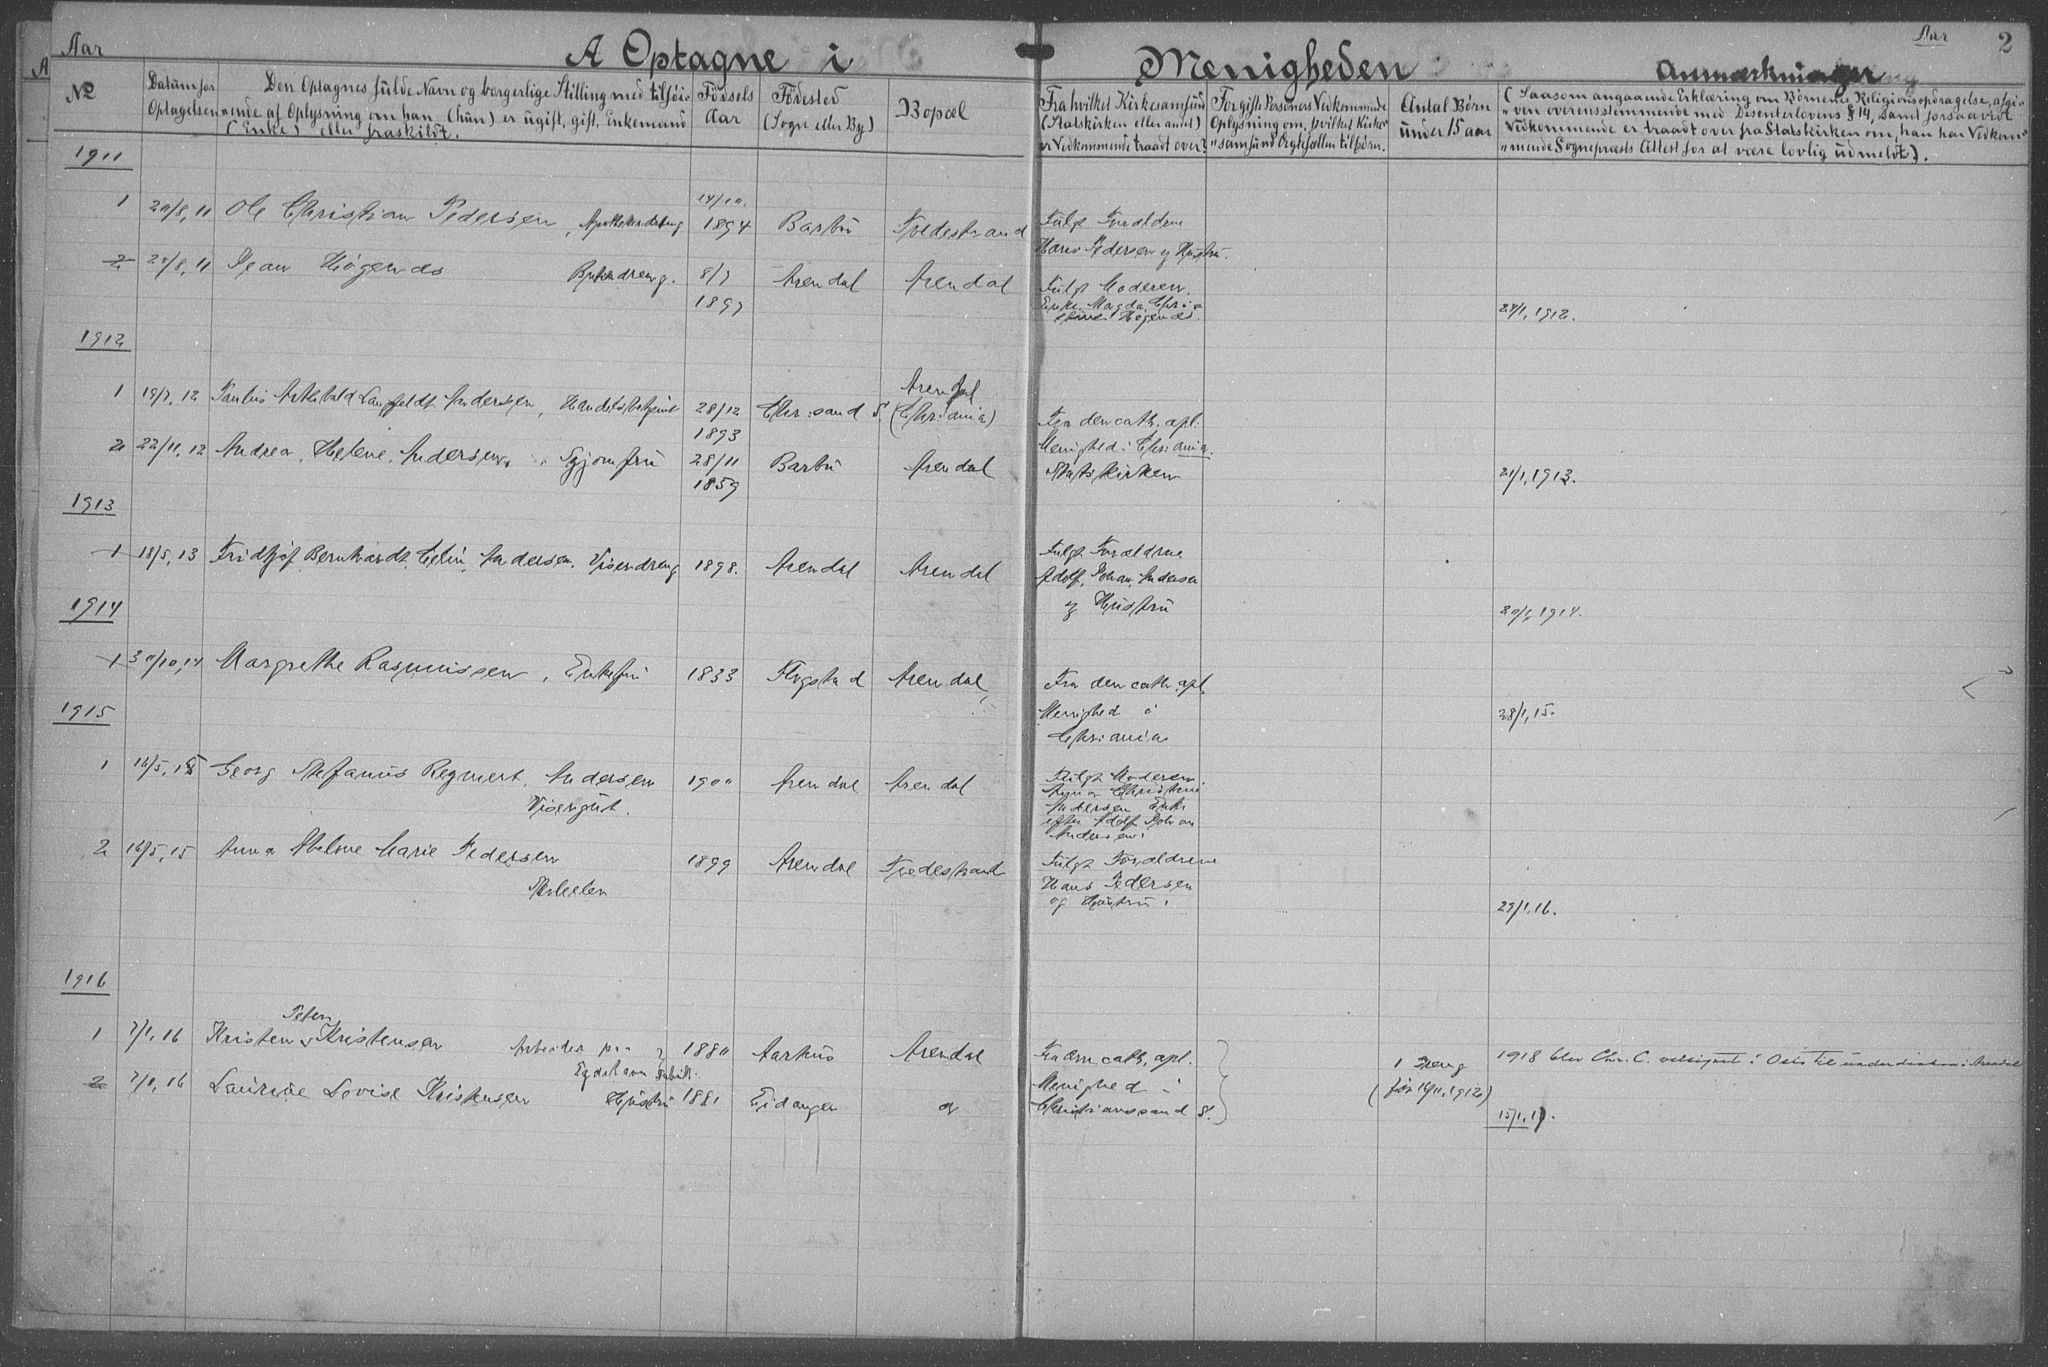 Aar
A Optagne i Menigheden
Aar
2
Anmærkninger
No
Datum for Optagelsen
Den Optagnes fulde Navn og borgerlige Stilling med tilføi-
ende af Oplysning om han (hun) er ugift, gift, Enkemand
(Enke) eller fraskildt.
Födsels Aar
Födested
(Sogn eller By)
Bopæl
Fra hvilket Kirkesamfund
(Statskirken eller andet)
er Vedkommende traadt over?
For gifte Personers Vedkommende
Oplysning om, hvilket Kirke-
samfund Ægtefællen tilhörer.
Antal Börn
under 15 aar
(Saasom angaaende Erklæring om Börnenes Religionsopdragelse, afgi-
ven overensstemmende med Disenterlovens § 14, samt forsaavidt
Vedkommende er traadt over fra Statskirken om, han har Vedkom-
mende Sogneprests Attest for at være lovlig udmeldt).
1911
1 20/8, 11 Ole Christian Pedersen, 14/10. 1894 Barbu Tvedestrand Fulgt Forældrene
Hans Pedersen og Hustru.
2 20/8, 11 Jean Högends 8/7 1897 Arendal Arendal Fulgt Moderen.
Enke Magda Chri-
stine Högends.
24/1, 1912.
1912
1 19/7, 12 Paulus Andersen, 28/12 1893 Chr:sand S. Arendal (Chr:ania) Fra den cath. apl.
Menighed i Chr:ania.
2 22/11, 12 Andrea Helene Andersen, Syjomfru 28/11 1859 Barbu Arendal Statskirken
21/1, 1913.
1913
1 18/5, 13 Fridtjof Bernhardt Andersen. Viserdreng 1898. Arendal Arendal Fulgt Forældrene
Adolf Johan Andersen
og Hustru
20/1, 1914.
1914
1 30/10, 14 Margrethe Rasmussen, Enkefru 1833 Arendal Fra den cath. apl.
Menighed i
Chr:ania
28/1, 15.
1915
1 16/5, 15 Georg Stefanus Regnert Andersen 1900 Arendal Arendal Fulgt Moderen
Visergut.
Christine
Andersen Enke
efter Adolf Johan
Andersen.
2 16/5, 15 Anna Abelone Marie Pedersen 1899 Arendal Tvedestrand Fulgt Forældrene
Hans Pedersen
og Hustru.
29/1, 16.
1916
1 7/1, 16 Kristen Peter Kristensen Arbeider paa
Eydehavn Fabrik. 1880 Aarhus Arendal
2 7/1, 16 Laurine Lovise Kristensen Hustru 1881 Eidanger
Fra den cath. apl.
Menighed i
Christianssand S.
1 Dreng
(för 1912)
1918 blev Chr. C. velsignet i Oslo til underdiakon i Arendal
15/1, 17.